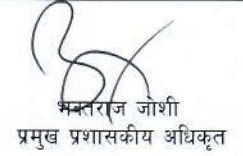 भक्तराज जोशी
प्रमुख प्रशासकीय अधिकृत